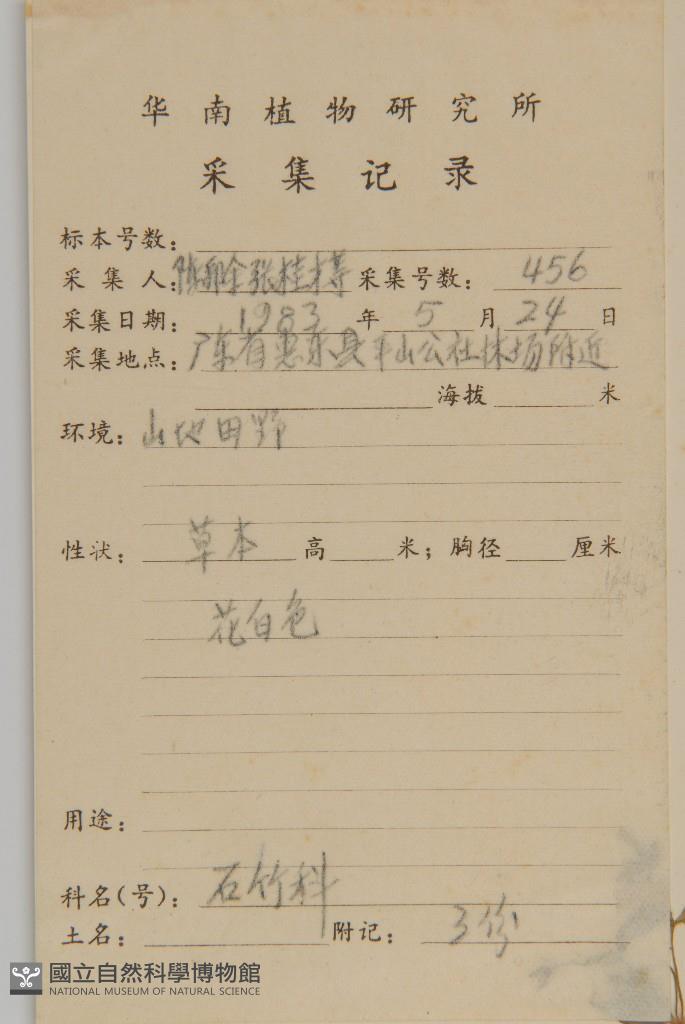 华南植物研究所
采集记录
标本号数：
采集人：张桂才等 采集号数：456
采集日期：1983年5月24日
采集地点：广东省惠东县平山公社林场附近
海拔 米
环境：山地田野
性状：草本 高 米；胸径 厘米
花白色
用途：
科名(号)：石竹科
土名： 附记：3份
國立自然科學博物館
NATIONAL MUSEUM OF NATURAL SCIENCE